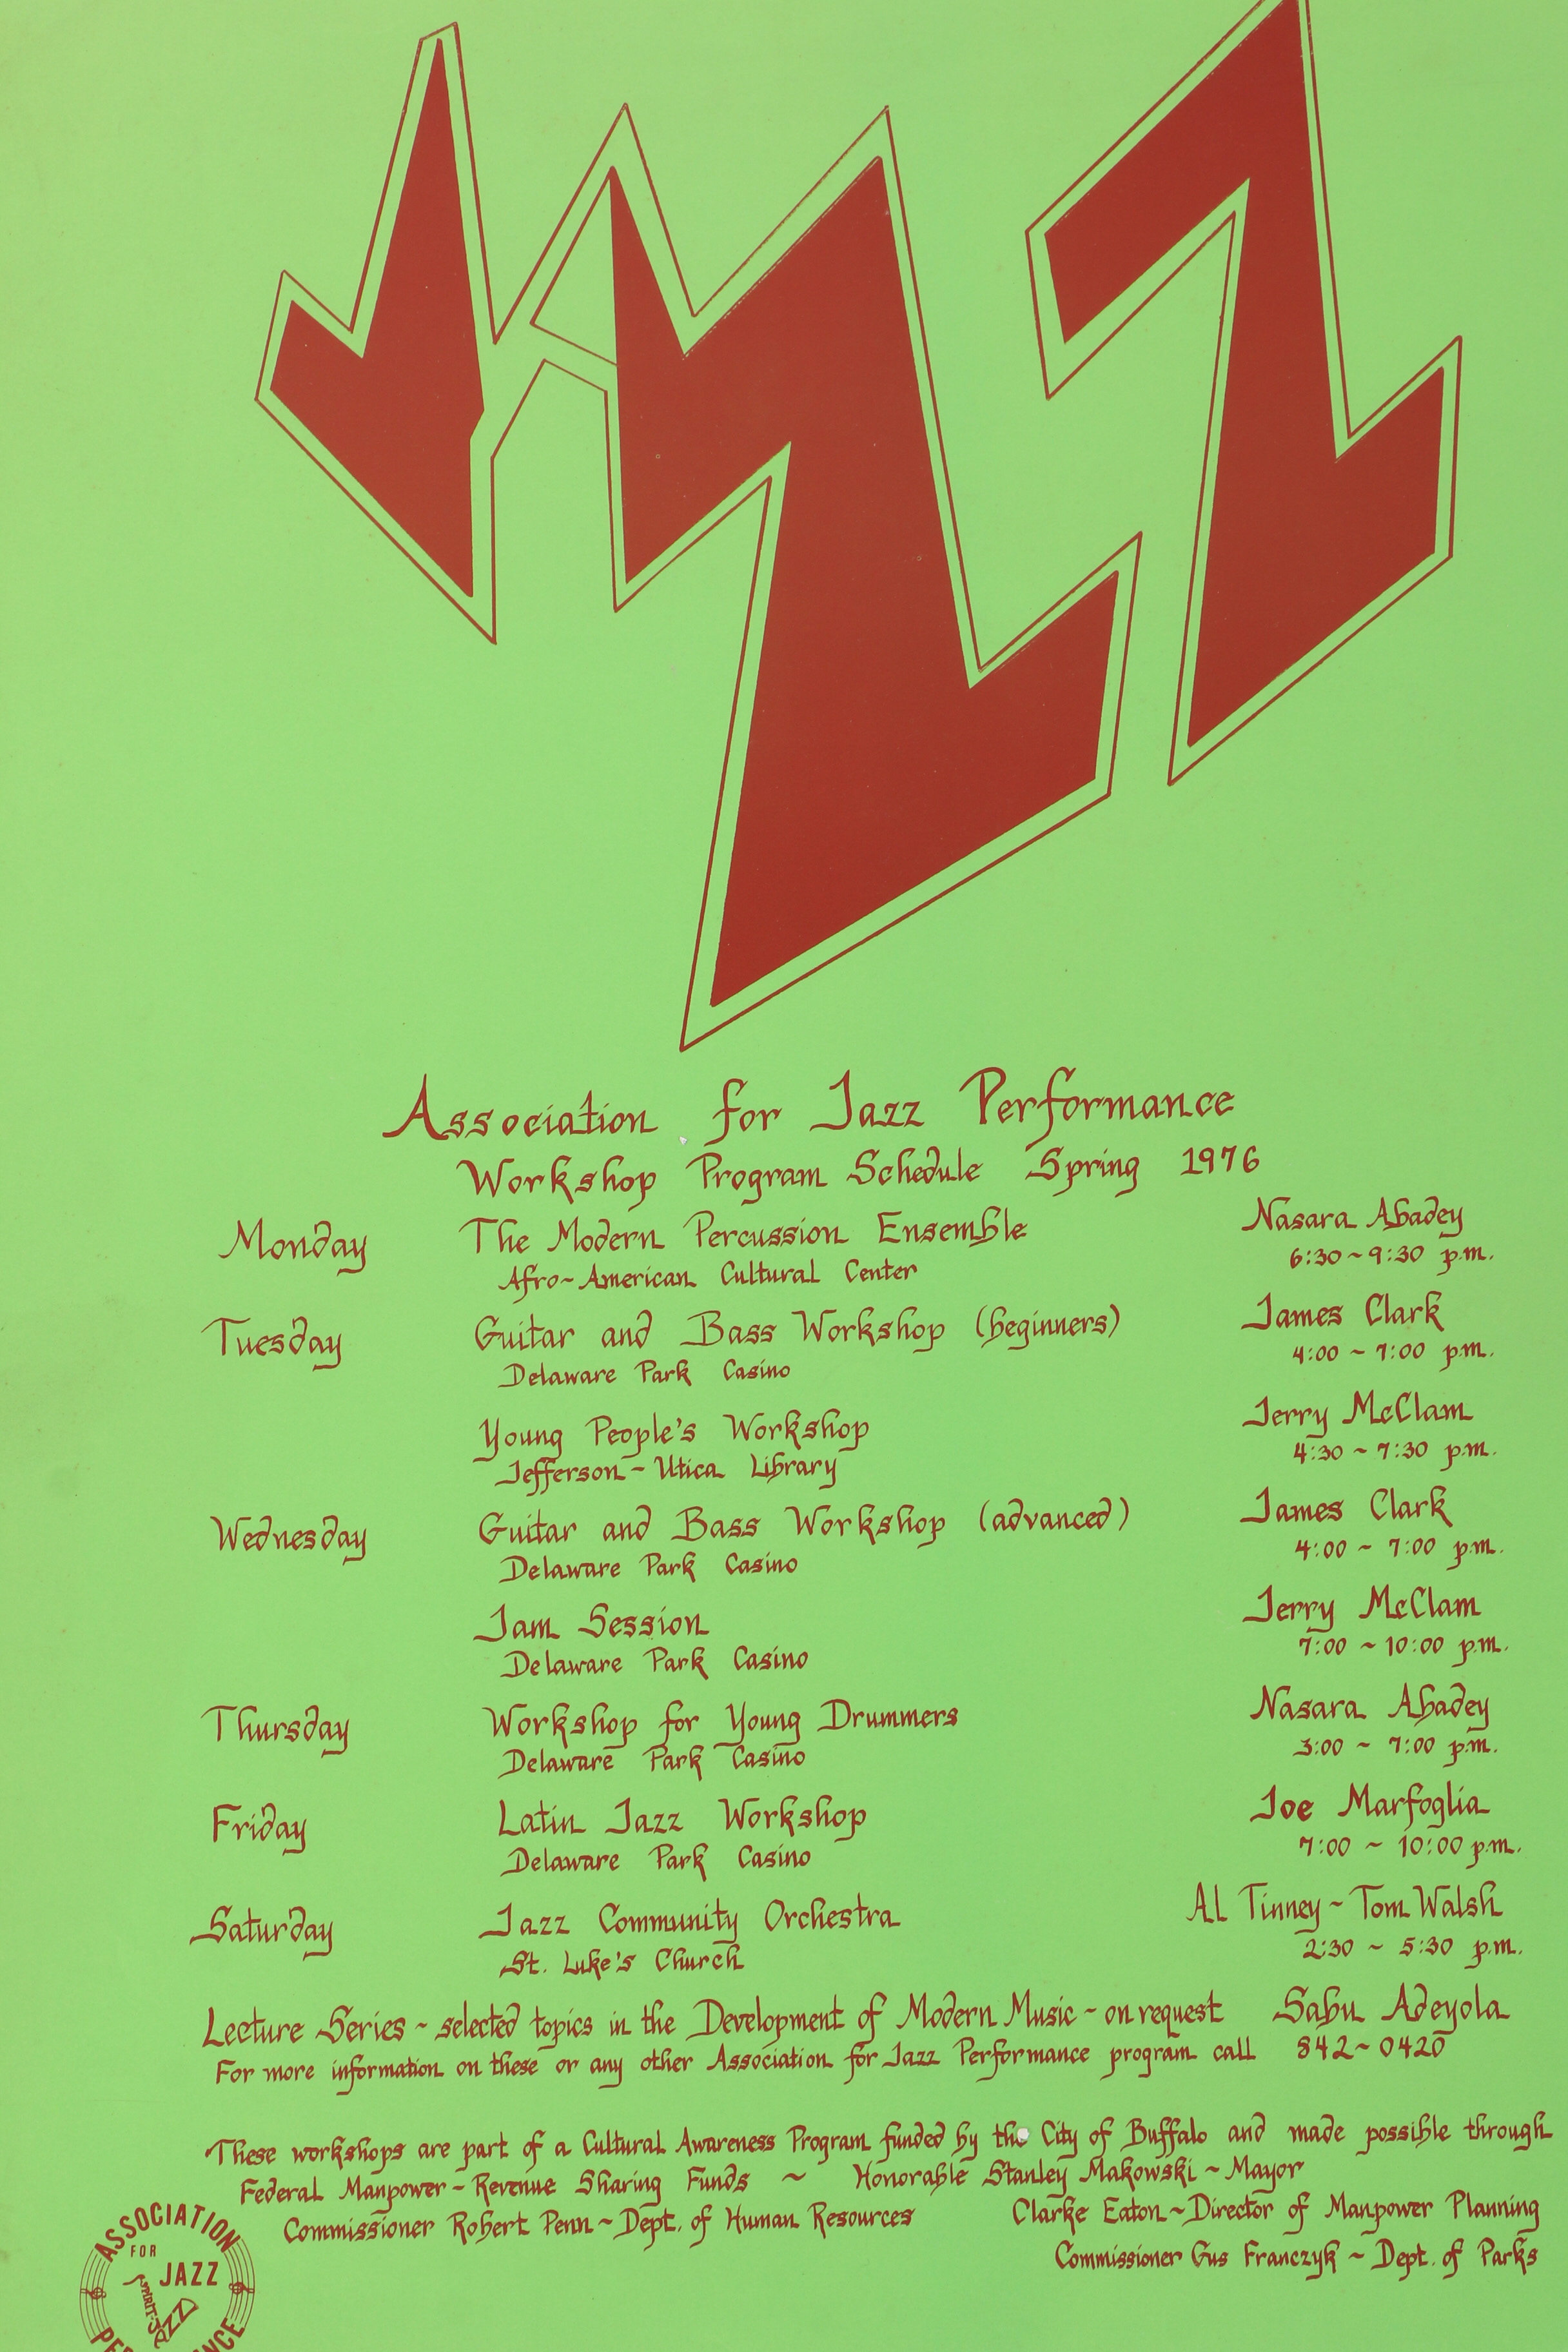 JAZZ
Association for Jazz Performance
Workshop Program Schedule Spring 1976
Monday The Modern Percussion Ensemble Nasara Abadey
Afro~American Cultural Center 6:30~9:30 p.m.
Tuesday Guitar and Bass Workshop (beginners) James Clark
Delaware Park Casino 4:00 ~ 7:00 p.m.
Young People's Workshop Jerry McClam
Jefferson~Utica Library 4:30 ~ 7:30 p.m.
Wednesday Guitar and Bass Workshop (advanced) James Clark
Delaware Park Casino 4:00 ~ 7:00 p.m.
Jam Session Jerry McClam
Delaware Park Casino 7:00 ~ 10:00 p.m.
Thursday Workshop for Young Drummers Nasara Abadey
Delaware Park Casino 3:00 ~ 7:00 p.m.
Friday Latin Jazz Workshop Joe Marfoglia
Delaware Park Casino 7:00 ~ 10:00 p.m.
Saturday Jazz Community Orchestra Al Tinney~Tom Walsh
St. Luke's Church 2:30 ~ 5:30 p.m.
Lecture Series~selected topics in the Development of Modern Music~on request Sabu Adeyola
For more information on these or any other Association for Jazz Performance program call 842~0420
These workshops are part of a Cultural Awareness Program funded by the City of Buffalo and made possible through
Federal Manpower~Revenue Sharing Funds ~ Honorable Stanley Makowski~Mayor
Commissioner Robert Penn~Dept. of Human Resources Clarke Eaton~Director of Manpower Planning
Commissioner Gus Franczyk ~ Dept. of Parks
ASSOCIATION
FOR
JAZZ
SPIRIT-
JAZZ